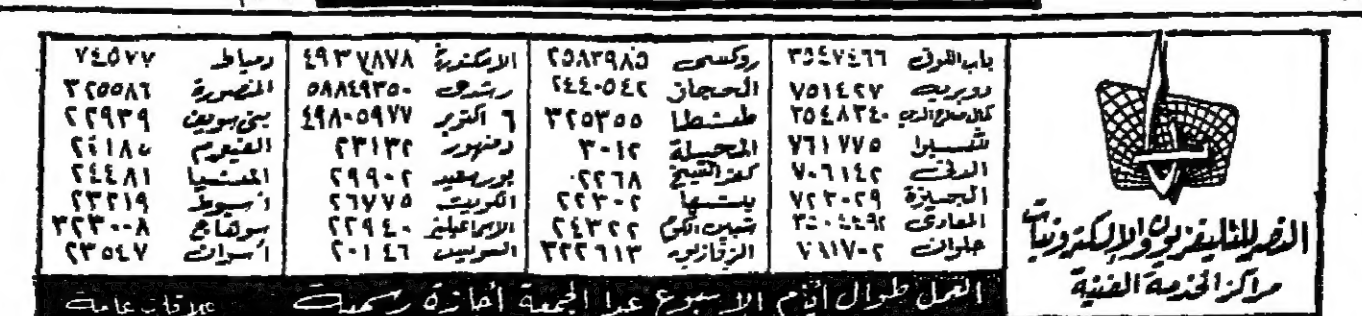 النصر للتليفزيون والإلكترونيات
مراكز الخدمة الفنية
باب اللوق ٣٥٤٧٤٦٦
روكسى ٢٥٨٣٩٨٥
الاسكندرية ٤٩٣٧٨٧٨
دمياط ٧٤٥٧٧
دوبريه ٧٥١٤٢٧
الحجاز ٢٤٤٠٥٤٢
رشدى ٥٨٨٤٩٣٥٠
المنصورة ٣٢٥٥٨٦
كمال صلاح الدين ٣٥٤٨٣٤٠
طنطا ٣٢٥٣٥٥
٦ اكتوبر ٤٩٨٠٥٩٧٧
بنى سويف ٢٢٩٣٩
شبرا ٧٦١٧٧٥
المحلة ٣٠١٢
دمنهور ٢٣١٣٢
الفيوم
الدقى ٧٠٦١٤٢
كفر الشيخ ٢٢٦٨٠
بورسعيد ٢٩٩٠٢
المنيا ٢٤٤٨١
الجيزة ٧٢٣٠٢٩
بنها ٢٢٣٠٢
الكويت ٢٦٧٧٥
أسيوط ٢٣٢١٩
المعادى
شبين الكوم ٢٤٣٢٢
الاسماعيلية ٢٢٩٤٠
سوهاج ٣٢٣٠٠٨
حلوان
الزقازيق ٣٢٢٦١٣
السويس ٢٠١٤٦
أسوان ٢٣٥٤٧
العمل طوال أيام الاسبوع عدا الجمعة أجازة رسمية
علاقات عامة